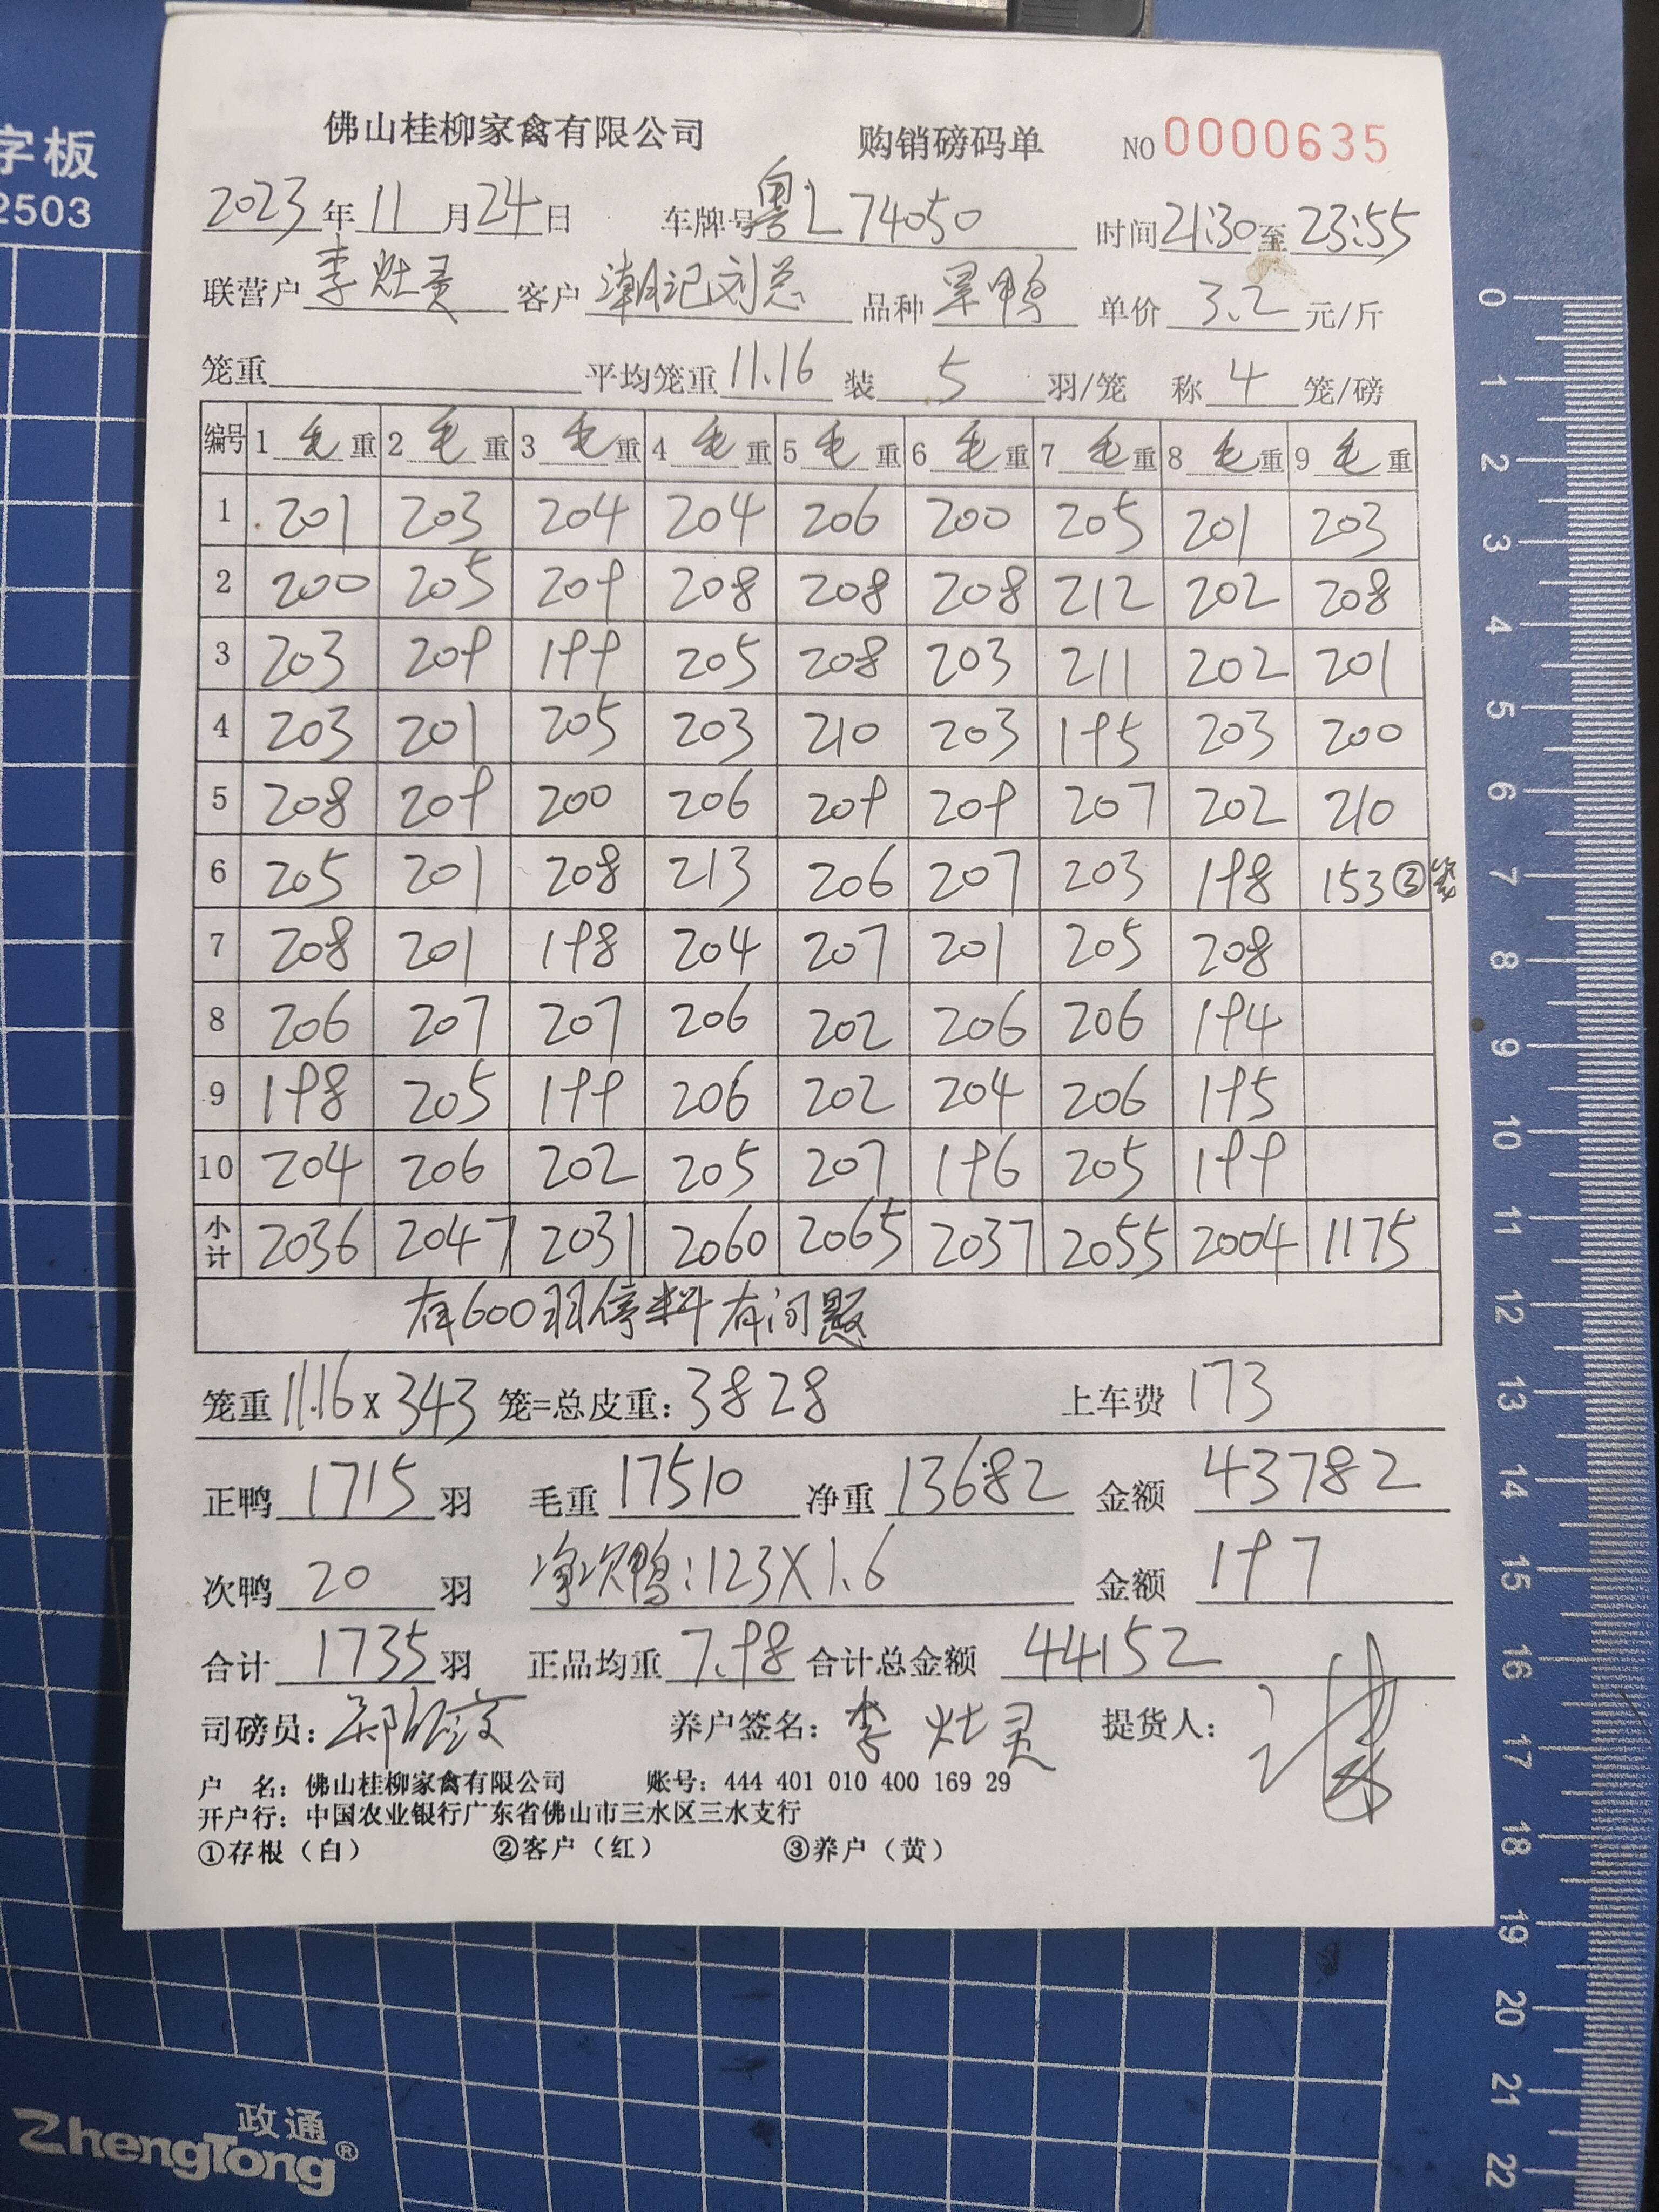 字板
2503
佛山桂柳家禽有限公司 购销磅码单 NO 0000635
2023年11月24日 车牌号粤L74050 时间21:30至23:55
联营户李灶灵 客户潮记刘总 品种旱鸭 单价3.2元/斤
笼重 平均笼重11.16 装5羽/笼 称4笼/磅
编号 1毛重 2毛重 3毛重 4毛重 5毛重 6毛重 7毛重 8毛重 9毛重
1 201 203 204 204 206 200 205 201 203
2 200 205 209 208 208 208 212 202 208
3 203 209 199 205 208 203 211 202 201
4 203 201 205 203 210 203 195 203 200
5 208 209 200 206 209 209 207 202 210
6 205 201 208 213 206 207 203 198 153 ③笼
7 208 201 198 204 207 201 205 208
8 206 207 207 206 202 206 206 194
9 198 205 199 206 202 204 206 195
10 204 206 202 205 207 196 205 199
小计 2036 2047 2031 2060 2065 2037 2055 2004 1175
有600羽停料有问题
笼重11.16x343笼=总皮重:3828 上车费173
正鸭1715羽 毛重17510 净重13682 金额43782
次鸭20羽 净次鸭:123X1.6 金额197
合计1735羽 正品均重7.98 合计总金额44152
司磅员: 郑 养户签名: 李灶灵 提货人:
户 名: 佛山桂柳家禽有限公司 账号: 444 401 010 400 169 29
开户行: 中国农业银行广东省佛山市三水区三水支行
①存根(白) ②客户(红) ③养户(黄)
政通
ZhengTong®
0
1
2
3
4
5
6
7
8
9
10
11
12
13
14
15
16
17
18
19
20
21
22